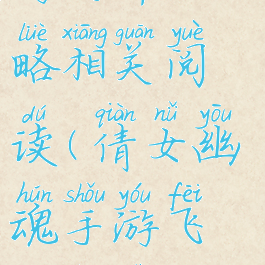 lüè xiāng guān yuè
略相关阅
dú qiàn nǚ yōu
读(倩女幽
hún shǒu yóu fēi
魂手游飞